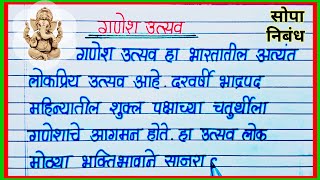 गणेश उत्सव
सोपा
निबंध
गणेश उत्सव हा भारतातील अत्यंत
लोकप्रिय उत्सव आहे. दरवर्षी भाद्रपद
महिन्यातील शुक्ल पक्षाच्या चतुर्थीला
गणेशाचे आगमन होते. हा उत्सव लोक
मोठ्या भक्तिभावाने साजरा